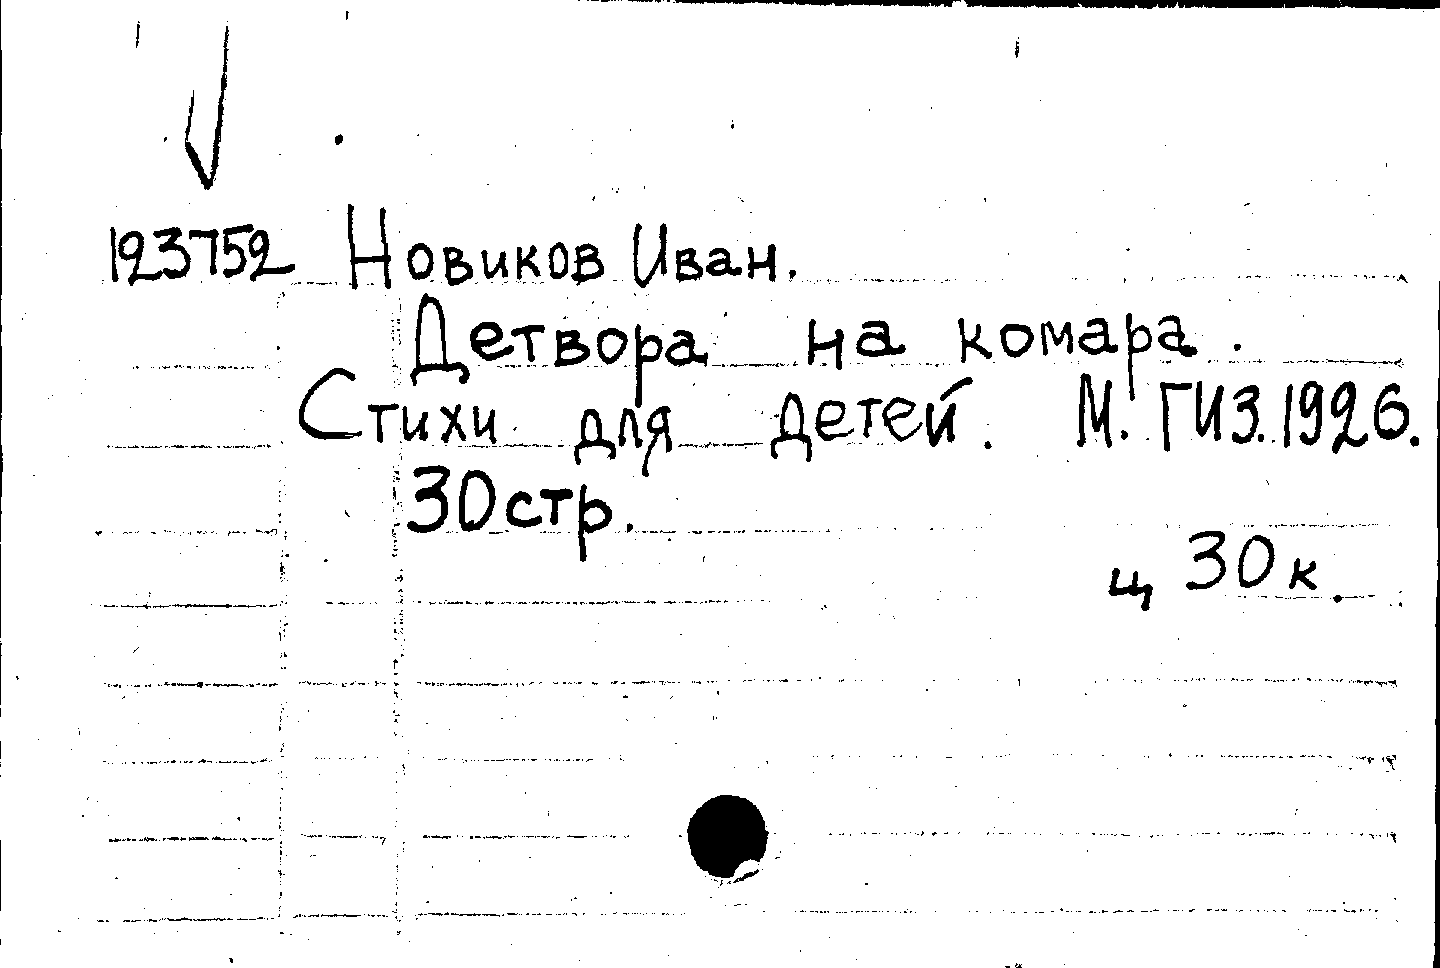 123752 Новиков Иван.
Детвора на комара.
Стихи для детей. М. ГИЗ. 1926.
30 стр.
ц 30 к.